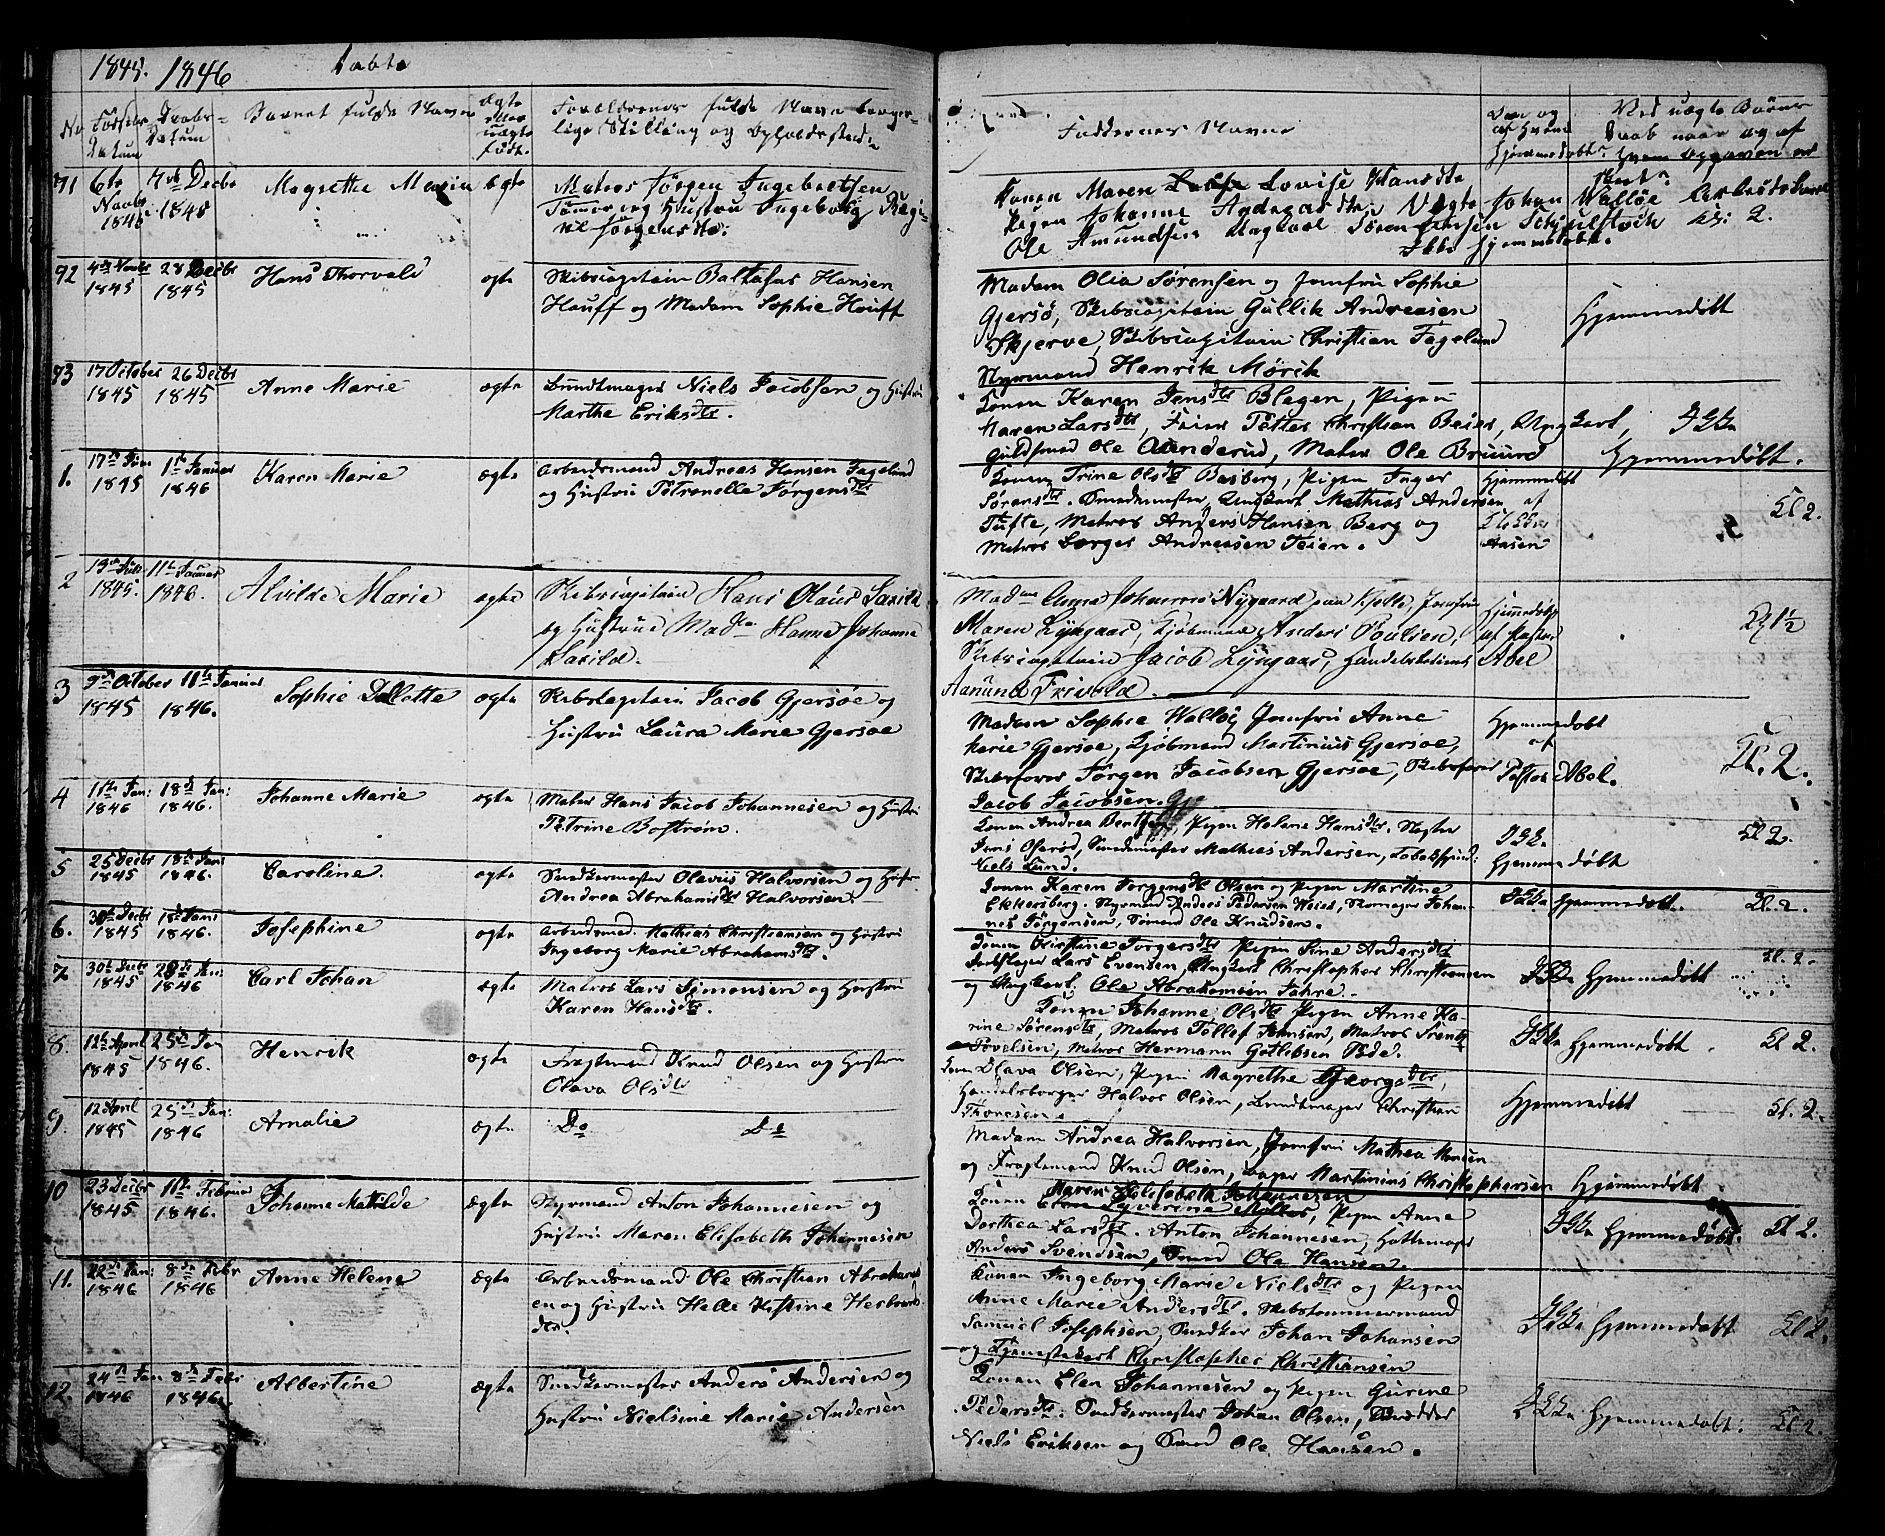 1845. 1846 Døbte
No Fødsels Datum Daabs Datum Barnets fulde Navn Ægte eller uægte født. Forældrenes fulde Navn borgerlige Stilling og Opholdssted
Faddernes Navne
71 6te Novbr 1845 7de Decbr 1845 Magrethe Maria ægte Matros Jørgen Ingebretsen
og Hustru Ingeborg
Jørgensdtr.
Konen Maren Lovise Hansdtr
Pigen Johanne Andreasdtr, Johan Walløe
Ole Amundsen Ungkarl Søren Jensen Kl: 2.
Ikke hjemmedøbt.
92 4de Novbr 1845 28 Decbr 1845 Hans Thorvald ægte Skibscapitain Baltasar Hansen
Houff og Madam Sophie Houff
Madam Olia Sørensen og Jomfru Sophie
Gjersø, Skibscapitain Gullik Andreasen
Skjerve, Skibscapitain Christian Fagelund
Styrmand Henrik Mørik
Hjemmedøbt
93 17 October 1845 26 Decbr 1845 Anne Marie ægte Bundtmager Niels Jacobsen og Hustru
Marthe Eriksdtr.
Konen Karen Jensdtr Blegen, Pigen
Maren Larsdtr, Christian Beier, Ungkarl,
Guldsmed Ole Aanderud, Matros Ole Bruund
Ikke
Hjemmedøbt.
1. 17de Jan 1845 1ste Januar 1846 Karen Marie ægte Arbeidsmand Andreas Hansen Fagelund
og Hustru Petronelle Jørgensdtr
Konen Trine Olsdtr Basberg, Pigen Inger
Sørensdtr. Smedemester, Ungkarl Mathias Andersen
Tufte, Matros Anders Hansen Berg og
Matros Borger Andreasen Teien.
Hjemmedøbt af Klokker Aasen
Kl 2.
2 1845. 11te Januar 1846. Alvilde Marie ægte Skibscapitain Hans Olaus Sarild
og Hustrue Madm Hanne Johanne
Sarild.
Madme Anne Johanne Nygaard paa Kjøltø, Jomfru
Maren Lyngaas, Kjøbmand Anders Poulsen,
Skibscapitain Jacob Lyngaas, Handelsbetient
Aanund Trivold.
Hjemmedøbt af Pastor Abel
Kl 1½
3 October 1845 11te Januar 1846. Sophie Dellotte ægte Skibscapitain Jacob Gjersøe og
Hustru Laura Marie Gjersøe
Madam Sophie Walløe, Jomfru Anne
Marie Gjersøe, Kjøbmand Martinius Gjersøe,
Skibsfører Jørgen Jacobsen Gjersøe, Skibsfører
Jacob Jacobsen.
Hjemmedøbt af
Pastor Abel.
Kl. 2.
4 11te Jan: 1846 18de Jan: 1846. Johanne Marie ægte Matros Hans Jacob Johannesen og Hustru
Petrine Bostrøm.
Konen Andrea Berntsen, Pigen Helene Hansdtr.
Smedemester Mathias Andersen, Tobakspind:
Niels Lund.
Ikke
Hjemmedøbt
Kl 2.
5 25 Decbr 1845 18de Jan: 1846. Caroline. ægte Snedkermester Olavus Halvorsen og Hustr.
Andrea Abrahamsdtr Halvorsen.
Konen Karen Jørgensdtr Olsen og Pigen Martine
Ekkersberg. Styrmand Anders Pedersen Skomager Johannes Jørgensen, Sømand Ole Knudsen.
Ikke hjemmedøbt. Kl. 2.
6. 30te Decbr 1845 18de Jan: 1846. Josephine ægte Arbeidsmd. Mathias Christiansen og Hustru
Ingeborg Marie Abrahamsdtr.
Konen Kirstine Torgersdtr, Pigen Sine Andersdtr
Lars Evensen, Ungkarl Christopher Christiansen
og Ungkarl Ole Abrahamsen Fahre.
Ikke hjemmedøbt Kl. 2.
7. 30te Decbr 1845 Jan: 1846 Carl Johan ægte Matros Lars Simonsen og Hustru
Karen Hansdtr.
Konen Johanne Olsdtr Pigen Anne Karine Sørensdtr, Matros Tollef Johnsen, Matros
Tovelsen, Matros Hermann Gotlibsen
Ikke hjemmedøbt. Kl 2.
8. 12te April 1845 25de Jan 1846. Henrik ægte Fragtmand Knud Olsen og Hustru
Olava Olsdtr
Konen Olava Olsen, Pigen Magrethe Georgsdtr,
Handelsborger Halvor Olsen, Bundtmager Christian
Thoresen.
Hjemmedøbt Kl. 2.
9. 12 April 1845 25de Jan: 1846 Amalie ægte. Do Do
Madam Andrea Halvorsen, Jomfru Mathea Hansen
og Fragtmand Knud Olsen, Martinius Christophersen Hjemmedøbt
10 23 Decbr 1845 Februar 1846. Johanne Matilde ægte Styrmand Anton Johannesen og
Hustru Maren Elisabeth Johannesen
Konen Maren Elisabeth Johannesen
Pigen Anne
Dorthea Larsdtr. Anton Johannesen, Hattemager
Anders Svendsen, Ole Hansen.
Ikke hjemmedøbt. Kl 2.
11. 22de Jan: 1846 8de Febr 1846 Anne Helene ægte Arbeidsmand Ole Christian Abrahamsen og Hustru Helle Kirstine
Konen Ingeborg Marie Nielsdtr og Pigen
Anne Marie Andersdtr. Skibstømmermand
Samuel Josephsen, Snedker Johan Johansen
og Tjenestekarl Christopher Christiansen
Ikke hjemmedøbt Kl 2.
12. 24de Jan 1846 8de Febr 1846. Albertine ægte Snedkermester Anders Andersen og
Hustru Nielsine Marie Andersen
Konen Elen Johannesen og Pigen Gurine
Pedersdtr. Snedkermester Johan Olsen, Skrædder
Niels Eriksen og Ole Hansen.
Ikke hjemmedøbt: Kl 2.